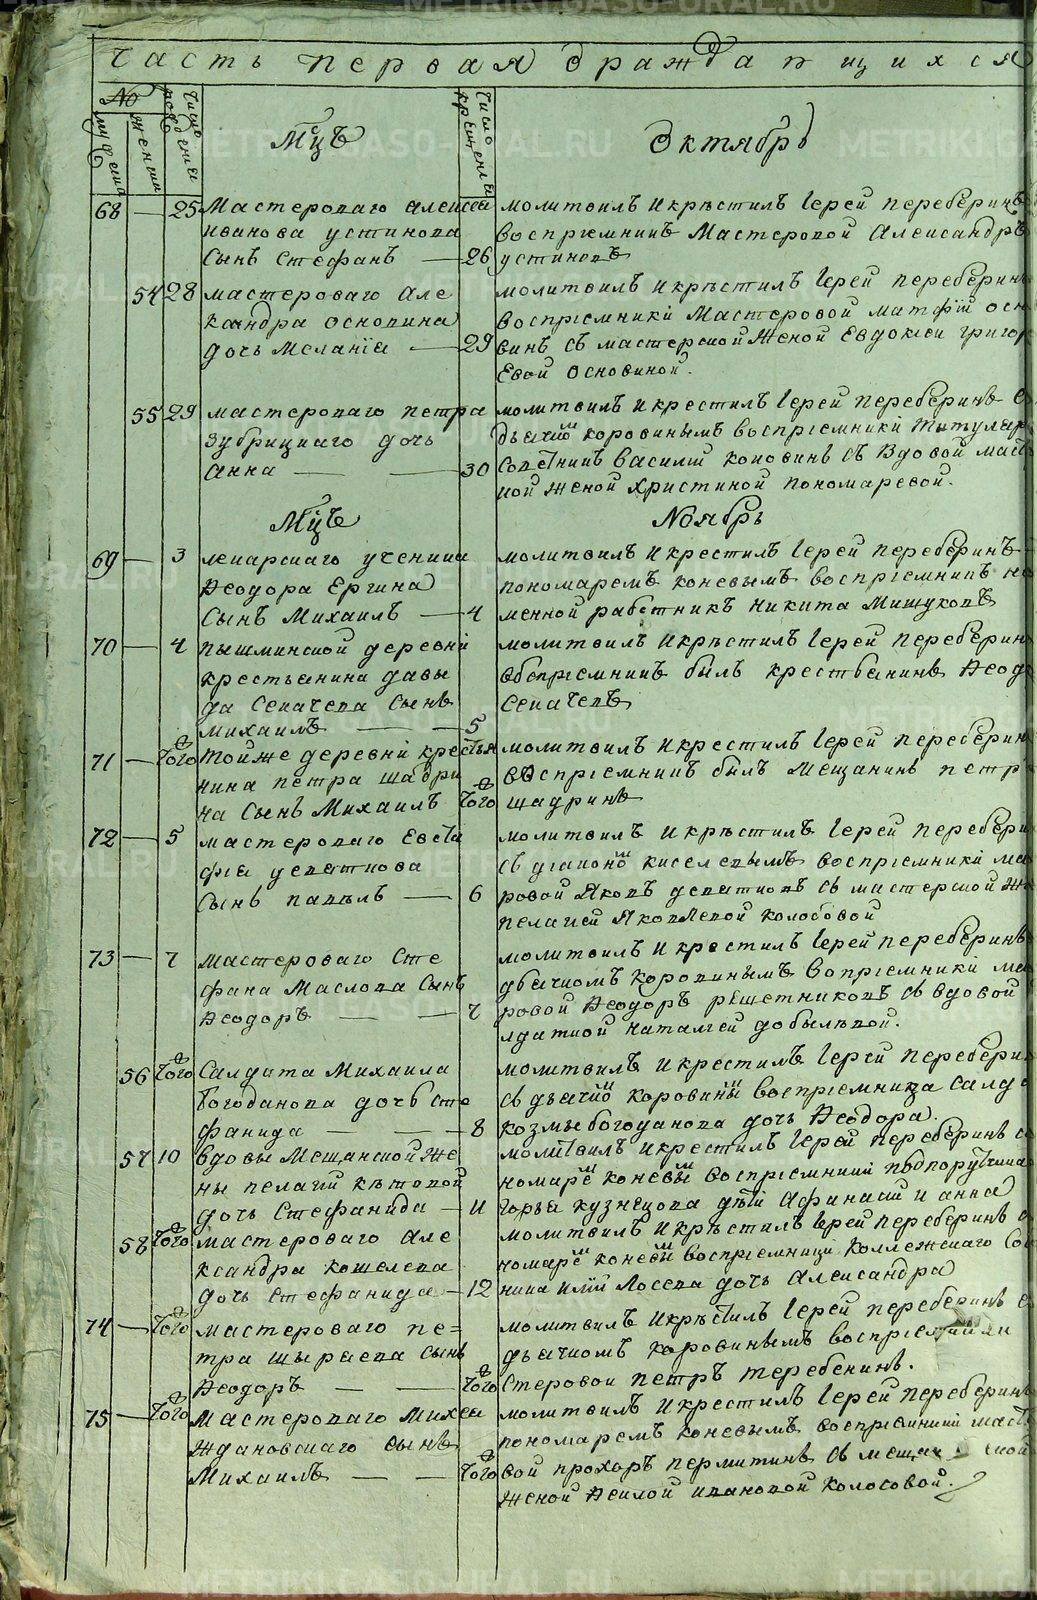 Часть первая ѡраждающихся
№
мужеска
женска
число рождения
Мцъ
число крещения
Октябрь
68 — 25 Мастероваго алексѣя
иванова устинова
сынъ Стефанъ — 26
молитвилъ и крѣстилъ Іерей переберинъ
воспріемникъ Мастеровой Александръ
устиновъ
54 28 мастероваго але
ксандра основина
дочь Меланія — 29
молитвилъ и крѣстилъ Іерей переберинъ
воспріемники Мастеровой матфій осно
винъ съ мастерской женой Евдокіей григор
Евой основиной.
55 29 мастероваго петра
зубрицкаго дочь
анна — 30
молитвилъ и крестилъ Іерей переберинъ с
дьячком коровинымъ воспріемники титуляр
советникъ василій коновинъ съ вдовой маст
кой женой христиной пономаревой.
Мцъ
Ноябрь
69 — 3 лекарскаго ученика
Ѳеодора Ергина
сынъ Михаилъ — 4
молитвилъ и крестилъ Іерей переберинъ
пономаремъ коневымъ воспріемникъ на
менной работникъ никита Мишуковъ
70 — 4 пышминской деревни
крестьянина давы
да Секачева сынъ
михаилъ — 5
молитвилъ и крѣстилъ Іерей переберин
воспріемникъ былъ крестьянинъ Ѳеодо
Секачевъ
71 — того тойже деревни крестья
нина петра шадри
на сынъ Михаилъ того
молитвилъ и крестилъ Іерей переберин
воспріемникъ былъ мещанинъ петр
шадринъ
72 — 5 мастероваго Евста
фія усватнова
сынъ павелъ — 6
молитвилъ и крѣстилъ Іерей перебери
съ діакономъ киселевымъ воспріемники ма
ровой Яковъ усватновъ съ мастерской же
пелагіей Яковлевой колобовой
73 — 7 мастероваго Сте
фана Маслова сынъ
Ѳеодоръ — 7
молитвилъ и крестилъ Іерей переберинъ
дьячкомъ коровинымъ воспріемники ма
ровой Ѳеодоръ решетниковъ съ вдовой
лдатской наталіей добылевой.
56 того Салдата Михаила
богоданова дочь сте
фанида — 8
молитвилъ и крестилъ Іерей переберин
съ дьячком коровиным воспріемница салда
козмы богоданова дочь Ѳеодора.
57 10 вдовы Мещанской же
ны пелагіи кѣтовой
дочь Стефанида — 11
молитвилъ и крестилъ Іерей переберинъ с
номарем коневым воспріемники подпоручика
горья кузнецова дѣти афанасій и анна
58 того мастероваго але
ксандра кошелева
дочь стефанида — 12
молитвилъ и крѣстилъ Іерей переберинъ
номарем коневым воспріемница коллежскаго Со
ника Лосева дочь александра
74 — того мастероваго пе=
тра шыряева сынъ
Ѳеодоръ — того
молитвилъ и крѣстилъ Іерей переберинъ с
дьячкомъ коровинымъ
стеровой петръ теребенинъ.
75 — того Мастероваго Михея
ждановскаго сынъ
Михаилъ — того
молитвилъ и крестилъ Іерей переберинъ
пономаремъ коневымъ воспріемники масте
вой прохоръ пермитинъ съ мещанской
женой Ѳеклой ивановой колосовой.
METRIKI.GASO-URAL.RU